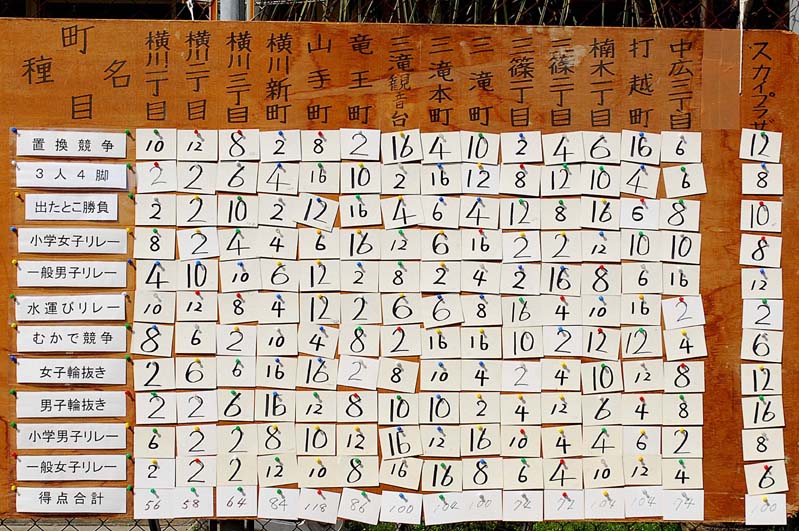 町名
種目
横川一丁目
横川二丁目
横川三丁目
横川新町
山手町
竜王町
三滝観音台
三滝本町
三滝町
三篠一丁目
三篠二丁目
楠木一丁目
打越町
中広三丁目
スカイプラザ
置換競争 10 12 8 2 8 2 16 4 10 2 4 6 16 6 12
3人4脚 2 2 6 4 16 10 2 16 12 8 12 10 4 6 8
出たとこ勝負 2 2 10 2 12 16 4 6 4 12 8 16 6 8 10
小学女子リレー 8 2 4 4 6 16 12 6 16 2 2 12 10 10 8
一般男子リレー 4 10 10 6 12 2 8 2 4 2 16 8 6 16 12
水運びリレー 10 12 8 4 12 2 6 6 8 16 4 10 16 2 2
むかで競争 8 6 2 10 4 8 2 16 16 10 2 12 12 4 6
女子輪抜き 2 6 6 16 16 2 8 10 4 2 4 10 12 8 12
男子輪抜き 2 2 6 16 12 8 10 10 2 4 12 6 4 8 16
小学男子リレー 6 2 2 8 10 12 16 12 16 10 4 4 6 2 8
一般女子リレー 2 2 2 12 10 8 16 16 8 6 4 10 12 4 6
得点合計 56 58 64 84 118 86 100 104 100 74 72 104 104 74 100